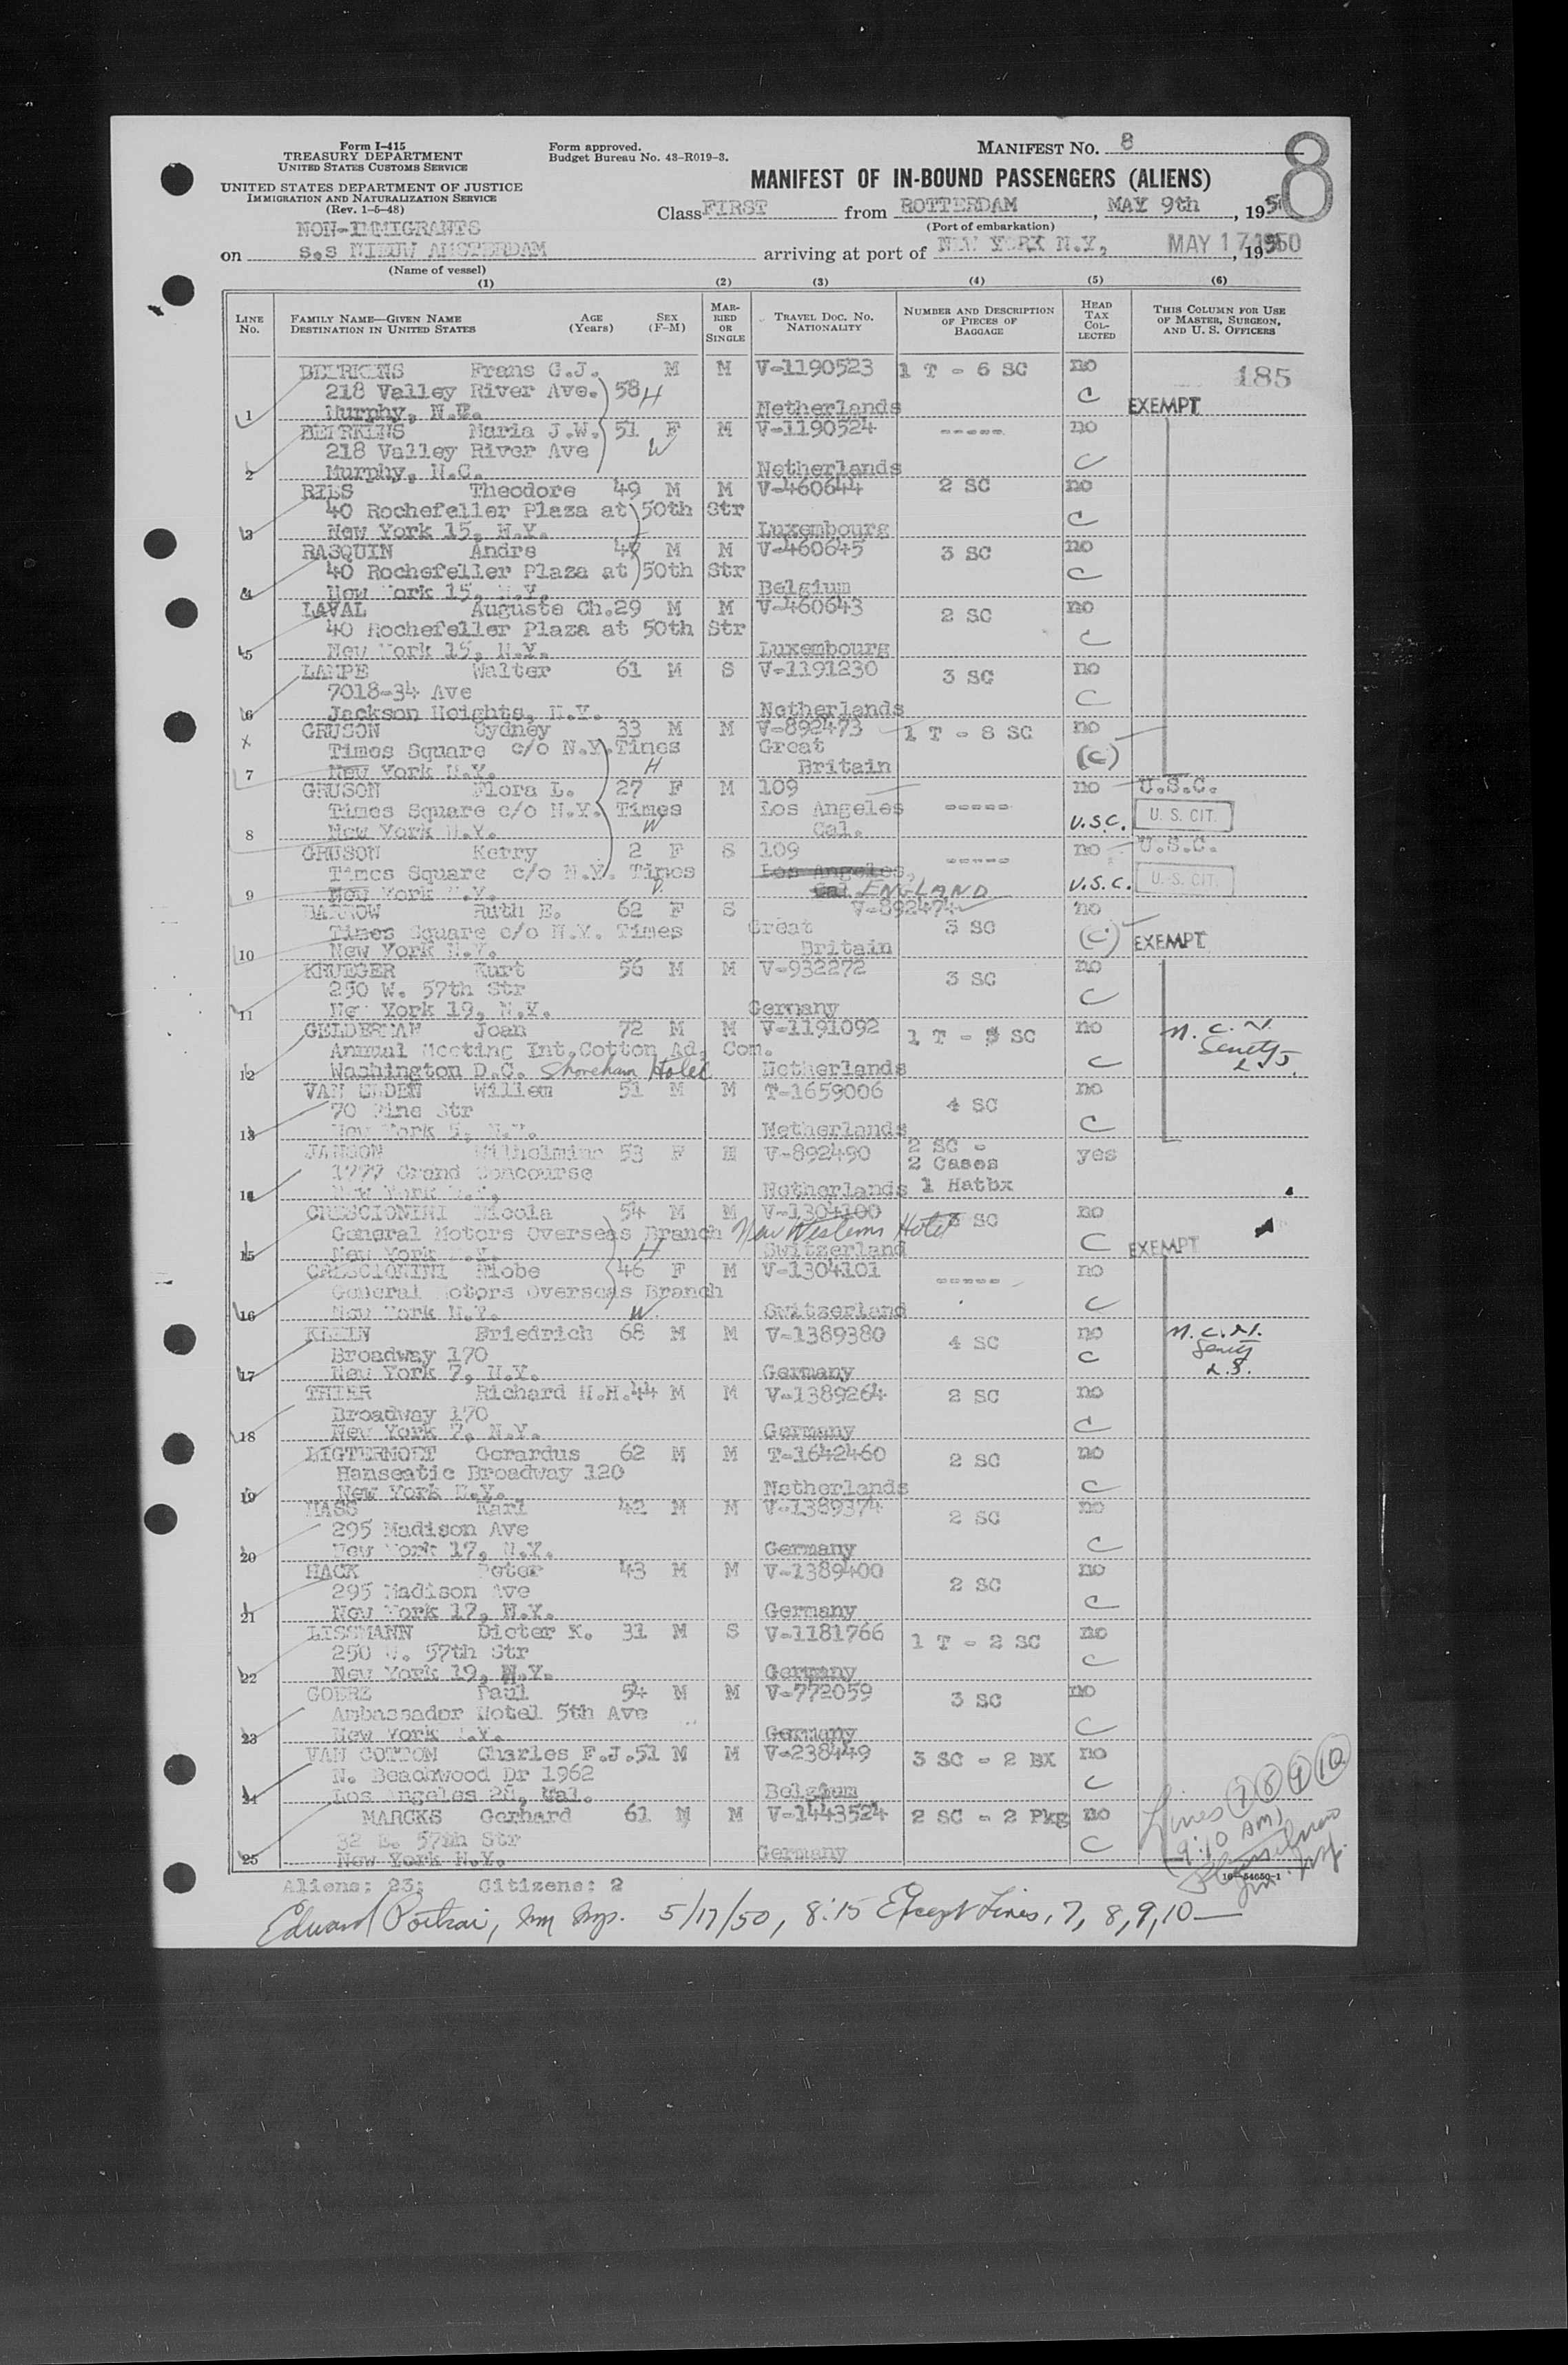 Form I-415
TREASURY DEPARTMENT
UNITED STATES CUSTOMS SERVICE
UNITED STATES DEPARTMENT OF JUSTICE
IMMIGRATION AND NATURALIZATION SERVICE
(Rev. 1-5-48)
Form approved.
Budget Bureau No. 43-R019-3.
MANIFEST NO. 8
8
MANIFEST OF IN-BOUND PASSENGERS (ALIENS)
Class FIRST from ROTTERDAM, MAY 9th, 1950
(Port of embarkation)
NON-IMMIGRANTS
on s.s NIEUW AMSTERDAM arriving at port of NEW YORK N.Y, MAY 17 1950
(Name of vessel)
(1) (2) (3) (4) (5) (6)
LINE NO. FAMILY NAME—GIVEN NAME DESTINATION IN UNITED STATES AGE (Years) SEX (F-M) MARRIED OR SINGLE TRAVEL DOC. NO. NATIONALITY NUMBER AND DESCRIPTION OF PIECES OF BAGGAGE HEAD TAX COLLECTED THIS COLUMN FOR USE OF MASTER, SURGEON, AND U. S. OFFICERS
Frans G.J. M M V-1190523 1 T - 6 SC no 185
218 Valley River Ave. 58 H
1 Murphy, N.C. Netherlands C EXEMPT
Maria J.W. 51 F M V-1190524 ----- no
218 Valley River Ave W
2 Murphy, N.C. Netherlands C
RIES Theodore 49 M M V-460644 2 SC no
40 Rochefeller Plaza at 50th Str
3 New York 15, N.Y. Luxembourg C
RASQUIN Andre M M V-460645 3 SC no
40 Rochefeller Plaza at 50th Str
4 New York 15, N.Y. Belgium C
LAVAL Auguste Ch. 29 M M V-460643 2 SC no
40 Rochefeller Plaza at 50th Str
5 New York 15, N.Y. Luxembourg C
LAMPE Walter 61 M S V-1191230 3 SC no
7018-34 Ave
6 Jackson Heights, N.Y. Netherlands C
GRUSON Sydney 33 M M V-892473 1 T - 8 SC no
x Times Square c/o N.Y. Times Great
7 New York N.Y. H Britain (C)
GRUSON Flora L. 27 F M 109 no U.S.C.
Times Square c/o N.Y. Times Los Angeles ----- U. S. CIT.
8 New York N.Y. W Cal. U.S.C.
GRUSON Kerry 2 F S 109 ----- no U.S.C.
Times Square c/o N.Y. Times Los Angeles,
9 New York N.Y. Cal. ENGLAND U.S.C. U. S. CIT.
BARROW Ruth E. 62 F S V-892474 no
Times Square c/o N.Y. Times Great 3 SC
10 New York N.Y. Britain (C) EXEMPT
KRUEGER Kurt 56 M M V-932272 3 SC no
250 W. 57th Str
11 New York 19, N.Y. Germany C
GELDERMAN Joan 72 M M V-1191092 1 T - SC no
Annual Meeting Int. Cotton Ad. Com.
12 Washington D.C. Shoreham Hotel Netherlands C
VAN Willem 51 M M T-1659006 4 SC no
70 Pine Str
13 New York 5, N.Y. Netherlands C
JANSON Wilhelmina 53 F M V-892490 2 SC - yes
1777 Grand Concourse 2 Cases
14 New York N.Y. Netherlands 1 Hatbx
CRESCIONINI Nicola 54 M M V-1304100 SC no
General Motors Overseas Branch New Westerns Hotel
15 New York N.Y. H Switzerland C EXEMPT
CRESCIONINI Niobe 46 F M V-1304101 ----- no
General Motors Overseas Branch
16 New York N.Y. W. Switzerland C
KLEIN Friedrich 68 M M V-1389380 4 SC no
Broadway 170
17 New York 7, N.Y. Germany C
Richard H.H. 44 M M V-1389264 2 SC no
Broadway 170
18 New York 7, N.Y. Germany C
LIGTERMOET Gerardus 62 M M T-1642460 2 SC no
Hanseatic Broadway 120
19 New York N.Y. Netherlands C
HASS Karl 42 M M V-1389374 2 SC no
295 Madison Ave
20 New York 17, N.Y. Germany C
HACK Peter 43 M M V-1389400 2 SC no
295 Madison Ave
21 New York 17, N.Y. Germany C
LISSMANN Dieter K. 31 M S V-1181766 1 T - 2 SC no
250 W. 57th Str
22 New York 19, N.Y. Germany C
Paul 54 M M V-772059 3 SC no
Ambassador Hotel 5th Ave
23 New York N.Y. Germany C
VAN COTTOM Charles F.J. 51 M M V-238449 3 SC - 2 BX no
N. Beachwood Dr 1962
24 Los Angeles 28, Cal. Belgium C
MARCKS Gerhard 61 M M V-1443524 2 SC - 2 Pkg no
32 E. 57th Str
25 New York N.Y. Germany C
Lines 7 8 9 10
(9:10 AM)
16—54650-1
Aliens: 23; Citizens: 2
Edward 5/17/50, 8:15 Except Lines, 7, 8, 9, 10